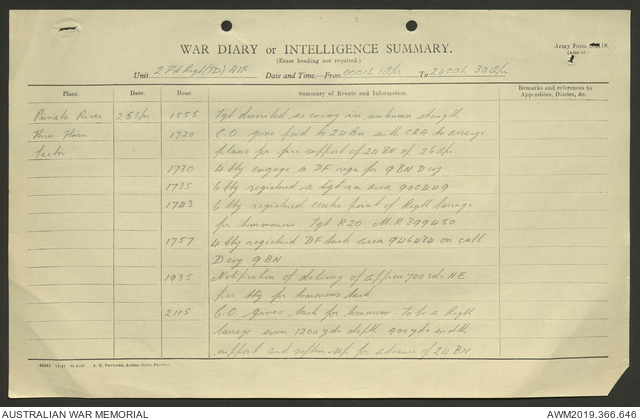 WAR DIARY or INTELLIGENCE SUMMARY.
(Erase heading not required.)
Army Form
Unit 2 Fd Regt AIF Date and Time—From 0001h 1 Apr To 2400h 30 Apr.
Place. Date. Hour. Summary of Events and Information. Remarks and references to Appendices, Diaries, &c.
River 25 Apr 1555 Tgt described as enemy in unknown strength
1720 C.O. gone fwd to 24 Bn with CRA to arrange
Sector plans for fire support of 24 BN of 26 Apr.
1730 4 bty engage a DF regn for 9 BN D coy
1735 6 bty registered a tgt in area 900449
1743 6 bty registered centre point of Regtl barrage
for tomorrow. Tgt R20. M.R 899450
1757 4 bty registered DF task area 946484 on call
D coy 9 BN
1935 Notification of delivery of approx 700 rds HE
per bty for tomorrows task
2115 C.O. gives task for tomorrow. To be a Regtl
barrage over 1200 yds depth 900 yds width
support and soften-up for advance of 24 BN
AUSTRALIAN WAR MEMORIAL
AWM2019.366.646